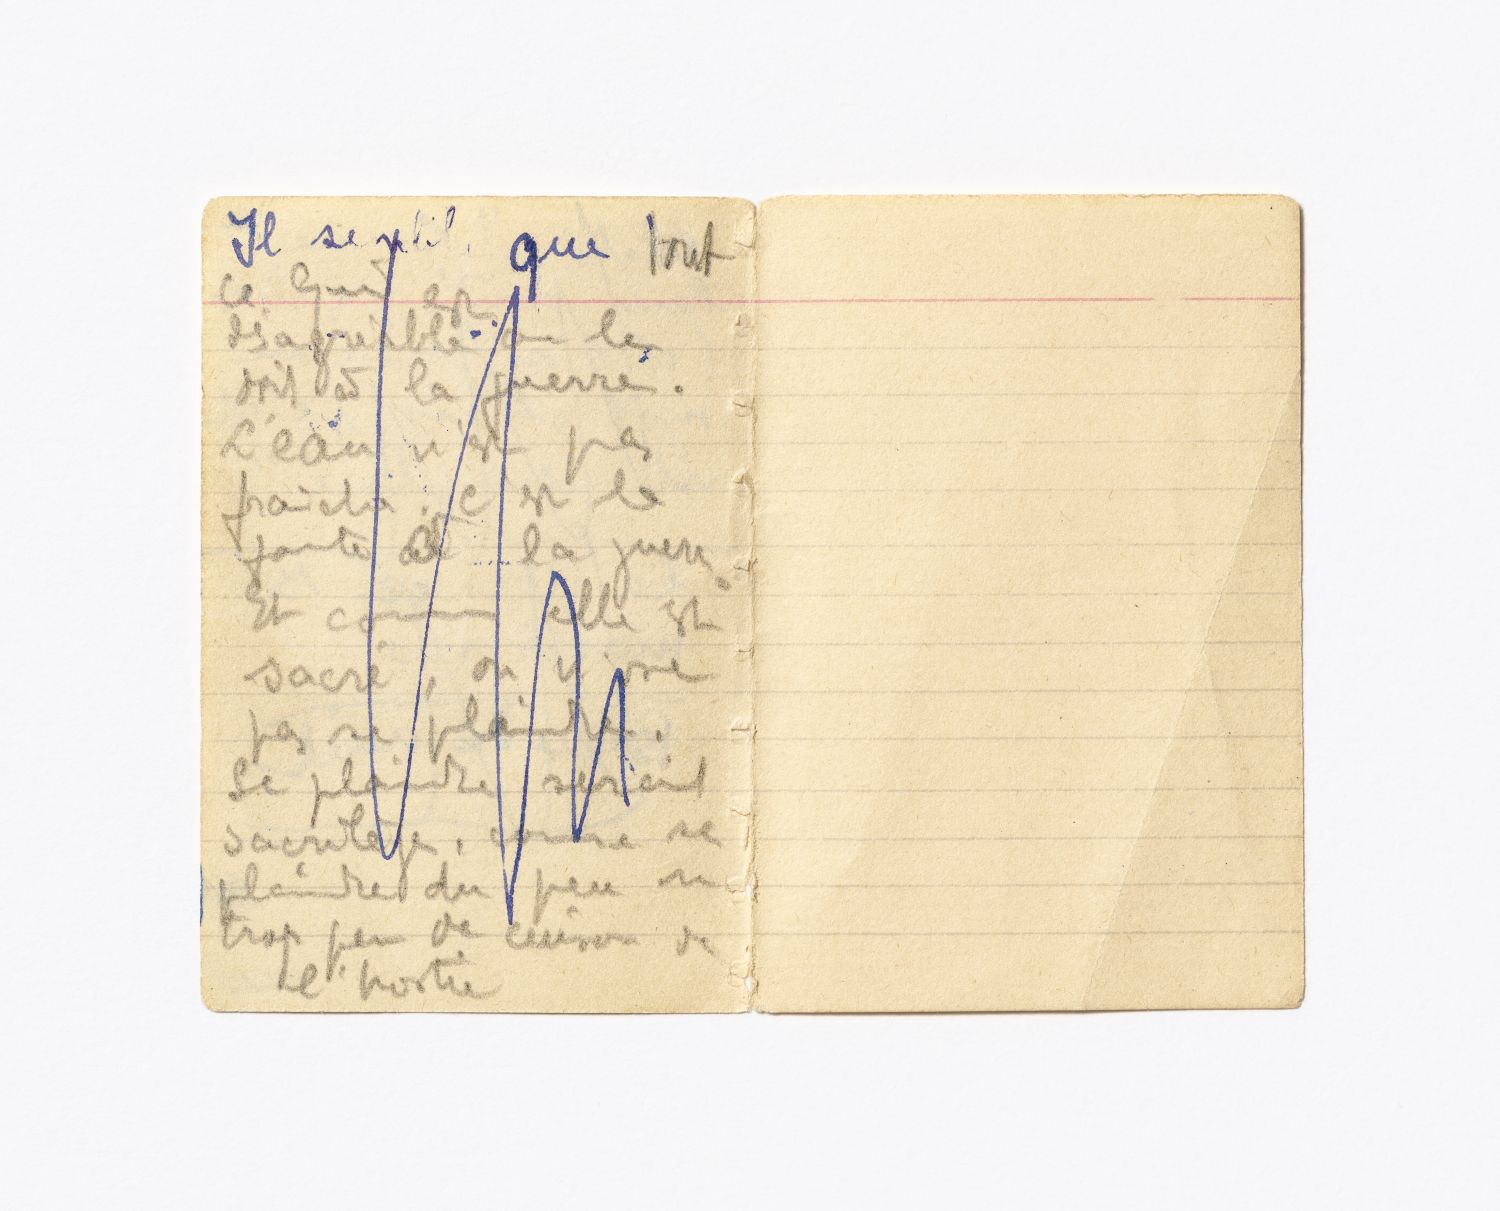 Il semblil. que tout
ce qui est
désagréable on le
doit à la guerre.
L'eau n'est pas
fraîche, c'est la
faute à la guerre
Et comme elle est
sacré, on n'ose
pas se plaindre.
Se plaindre serait
sacrilège, comme se
plaindre du peu ou
trop peu de cuisson de
l'hostie